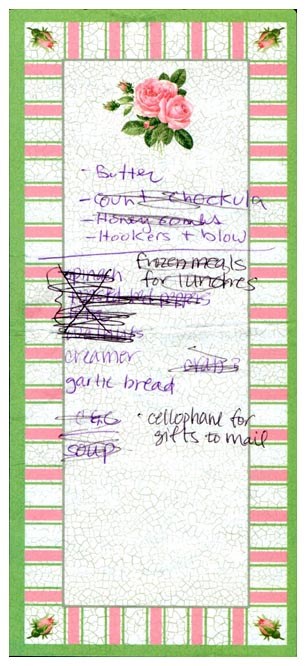 - Butter
- Count Chockula
- Honey combs
- Hookers + blow
frozen meals
for lunches
spinach
creamer
garlic bread
EGG
• cellophane for
gifts to mail
soup